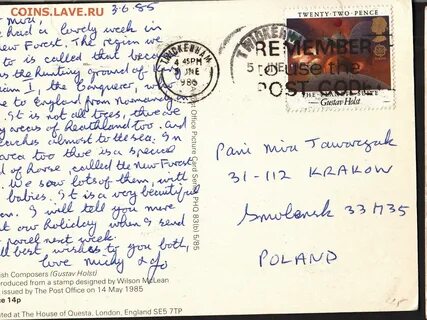 COINS.LAVE.RU
3.6.85
had a lovely week in
New Forest. The region we
to is called that because
as the hunting ground of
liam I, the Conqueror, who
me to England from Normandy in
It is not all trees, there are
areas of heathland too. And
reaches almost to the sea. In
area too there is a special
of horse, called the New Forest
We saw lots of them, with
babies. It is a very beautiful
I will tell you more
our holiday when I send
novel next week.
best wishes to you both,
love
ish Composers (Gustav Holst)
roduced from a stamp designed by Wilson McLean
issued by The Post Office on 14 May 1985
ce 14p
ted at The House of Questa, London, England SE5 7TP
Post Office Picture Card Series PHQ 83(b) 5/85
TWICKENHAM
4 45PM
5 JUNE
1985
TWICKENHAM
5 JUNE
REMEMBER
to use the
POST CODE
TWENTY·TWO·PENCE
THE·PLANETS·SUITE
Gustav Holst
Pani Mira Tawarczuk
31-112 KRAKOW
Smolensk 33/135
POLAND